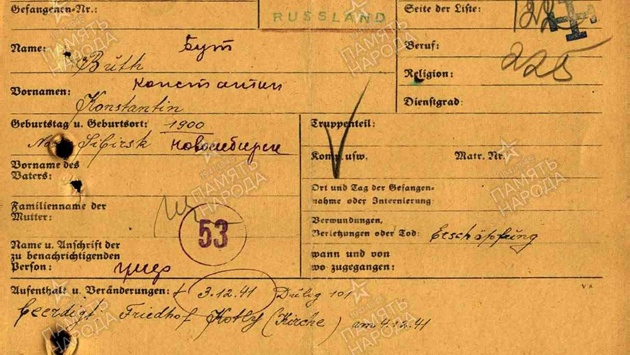 Gefangenen-Nr.:
RUSSLAND
Seite der Liste:
122
Name: Бут
Büth
Beruf:
225
Religion:
Vornamen: Константин
Konstantin
Dienstgrad:
Geburtstag u. Geburtsort: 1900
Sibirsk Новосибирск
Truppenteil:
Komp. usw. Matr. Nr.
Vorname des
Vaters:
Ort und Tag der Gefangen-
nahme oder Internierung:
Familienname der
Mutter:
53
Verwundungen,
Verletzungen oder Tod: Erschöpfung
Name u. Anschrift der
zu benachrichtigenden
Person: умер
wann und von
wo zugegangen:
Aufenthalt u. Veränderungen: † 3.12.41 Dulag 101
beerdigt Friedhof Kotly (Kirche) am 4.12.41
ПАМЯТЬ
НАРОДА